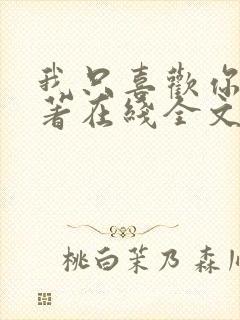 我只喜歡你
著在綫全文
桃白茉乃 森川